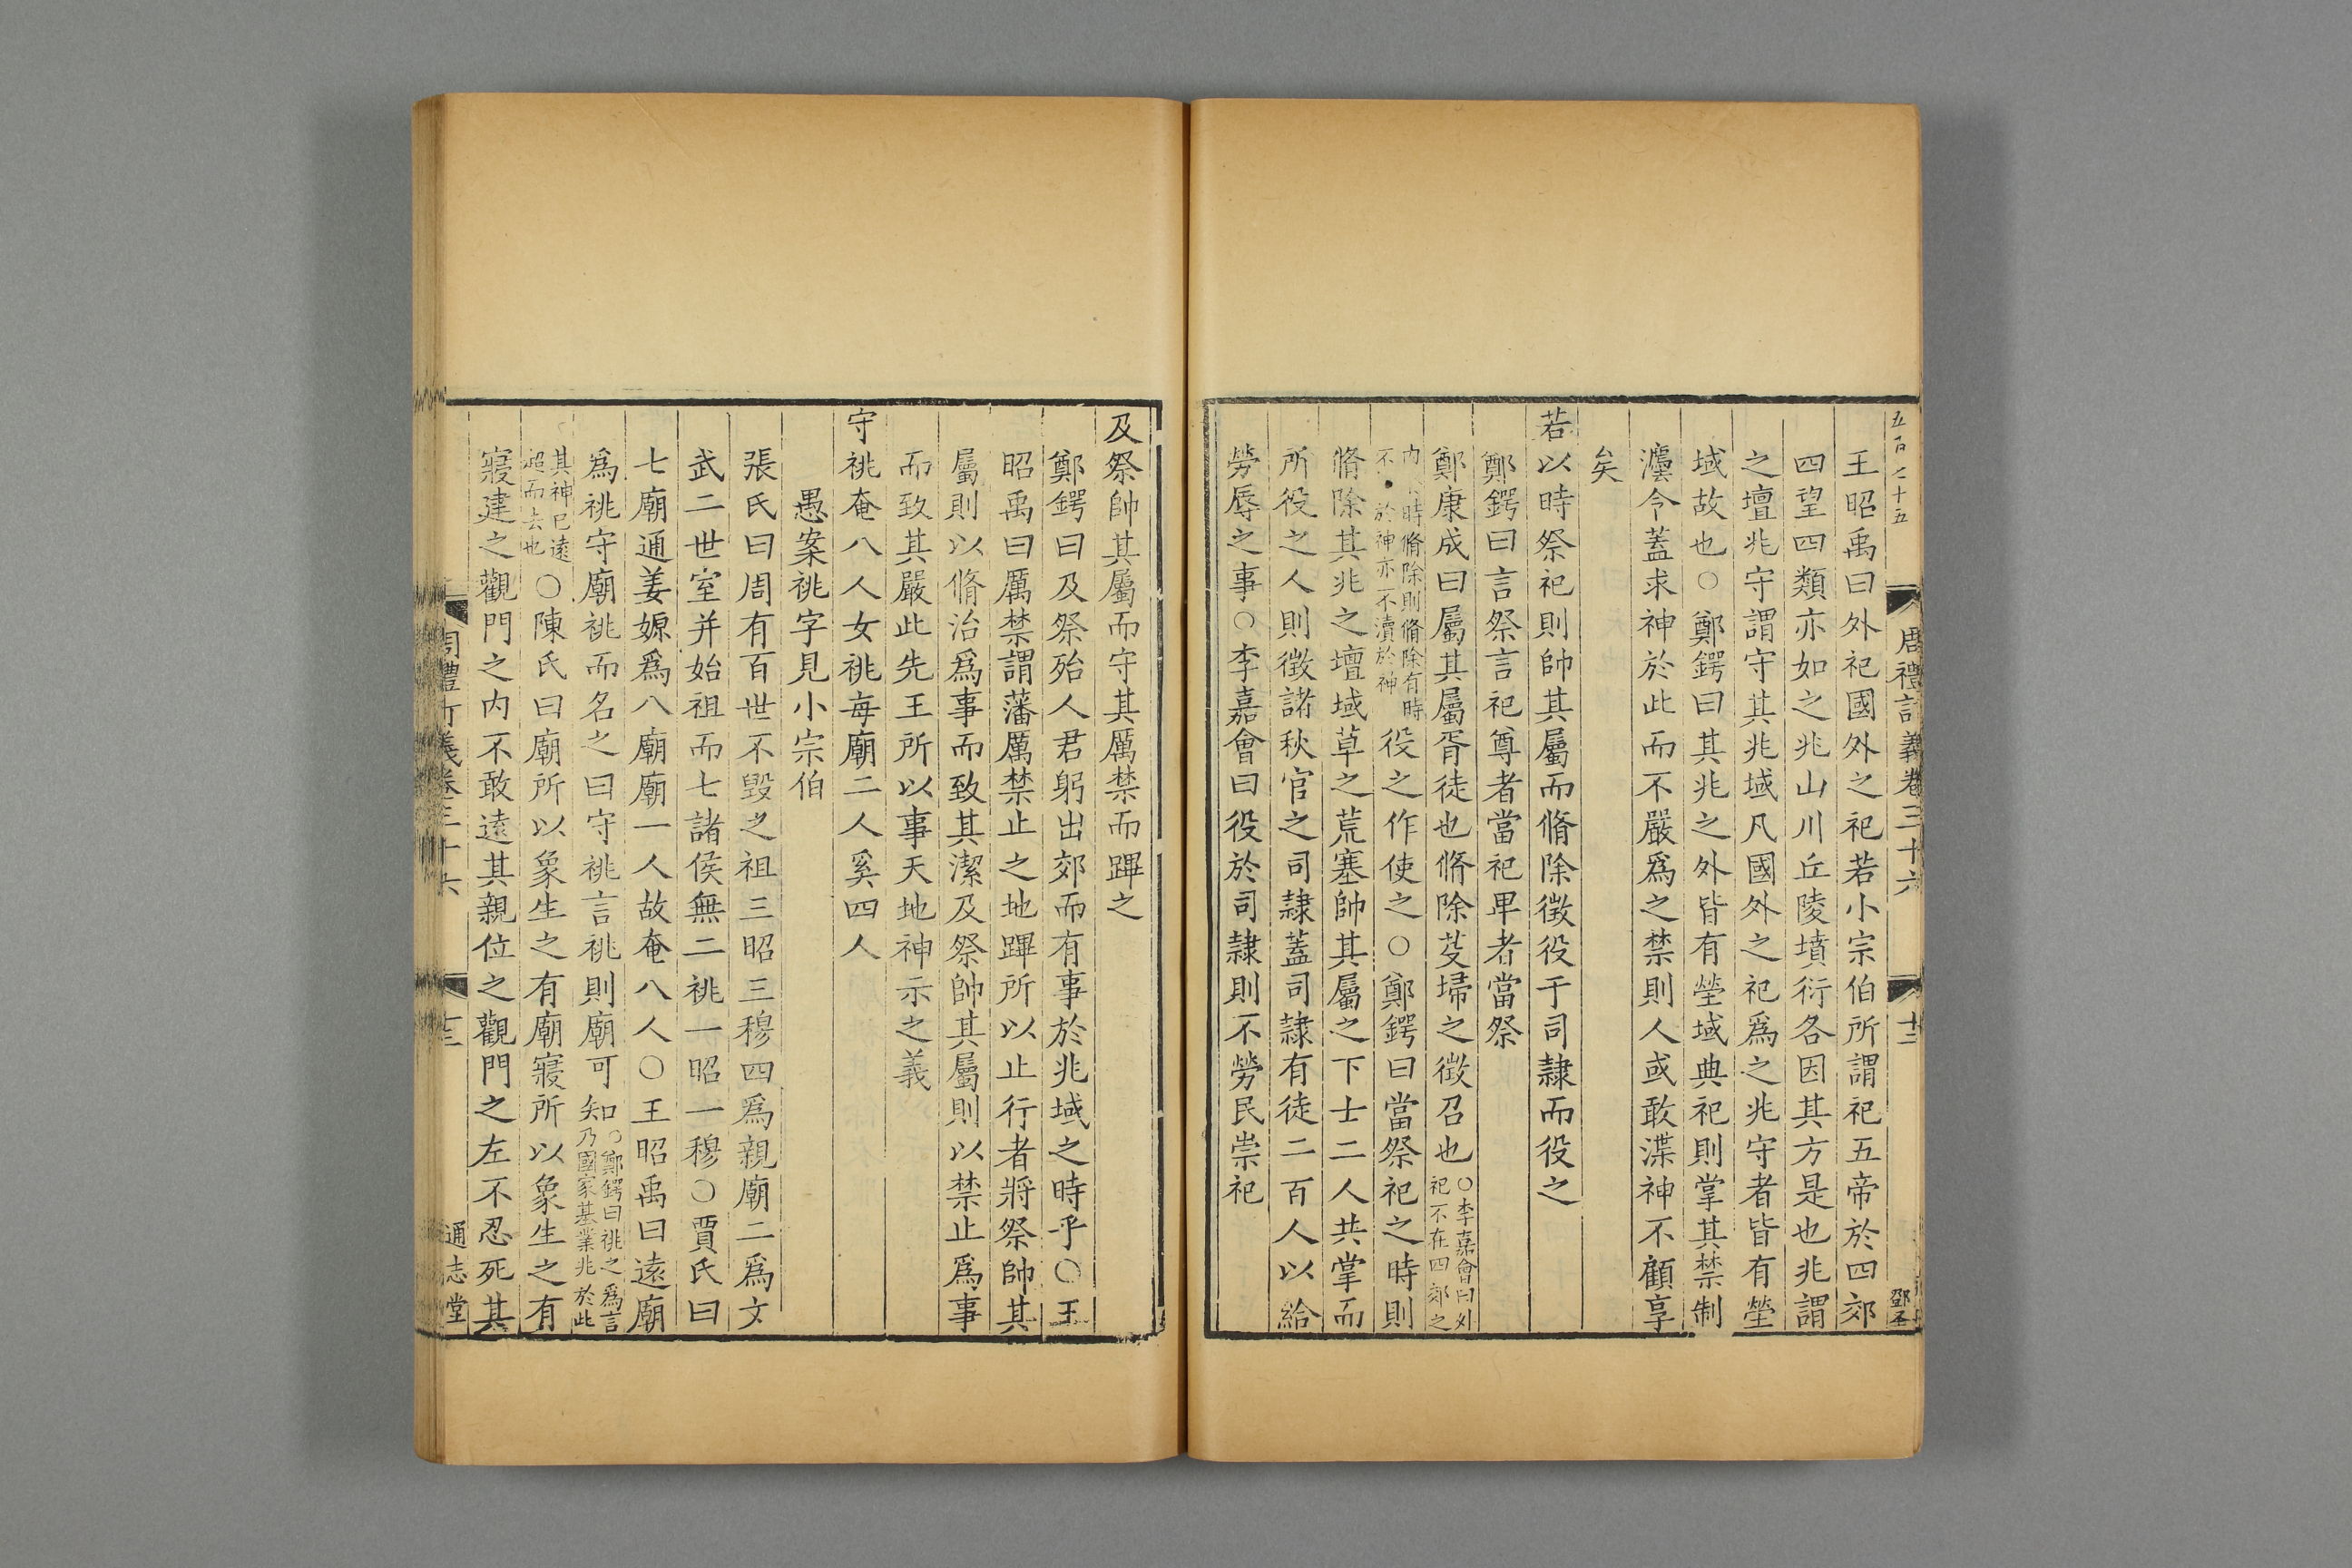 五百七十五
周禮訂義卷三十六
十二
鄧丕
王昭禹曰外祀國外之祀若小宗伯所謂祀五帝於四郊
四望四類亦如之兆山川丘陵墳衍各因其方是也兆謂
之壇兆守謂守其兆域凡國外之祀爲之兆守者皆有塋
域故也○鄭鍔曰其兆之外皆有塋域典祀則掌其禁制
濹令蓋求神於此而不嚴爲之禁則人或敢渫神不顧享
矣
若以時祭祀則帥其屬而脩除徵役于司隷而役之
鄭鍔曰言祭言祀尊者當祀卑者當祭
鄭康成曰屬其屬胥徒也脩除芟埽之徵召也○李嘉會曰外
祀不在四郊之
内時脩除則脩除有時
不於神亦不瀆於神
役之作使之○鄭鍔曰當祭祀之時則
脩除其兆之壇域草之荒塞帥其屬之下士二人共掌而
所役之人則徵諸秋官之司隷蓋司隷有徒二百人以給
勞辱之事○李嘉會曰役於司隷則不勞民崇祀
及祭帥其屬而守其厲禁而蹕之
鄭鍔曰及祭殆人君躬出郊而有事於兆域之時乎○王
昭禹曰厲禁謂藩厲禁止之地蹕所以止行者將祭帥其
屬則以脩治爲事而致其潔及祭帥其屬則以禁止爲事
而致其嚴此先王所以事天地神示之義
守祧奄八人女祧每廟二人奚四人
愚案祧字見小宗伯
張氏曰周有百世不毀之祖三昭三穆四爲親廟二爲文
武二世室并始祖而七諸侯無二祧一昭一穆○賈氏曰
七廟通姜嫄爲八廟廟一人故奄八人○王昭禹曰遠廟
爲祧守廟祧而名之曰守祧言祧則廟可知○鄭鍔曰祧之爲言
乃國家基業兆於此
其神已遠
超而去也
○陳氏曰廟所以象生之有廟寢所以象生之有
寢建之觀門之内不敢遠其親位之觀門之左不忍死其
周禮訂義卷三十六
十三
通志堂